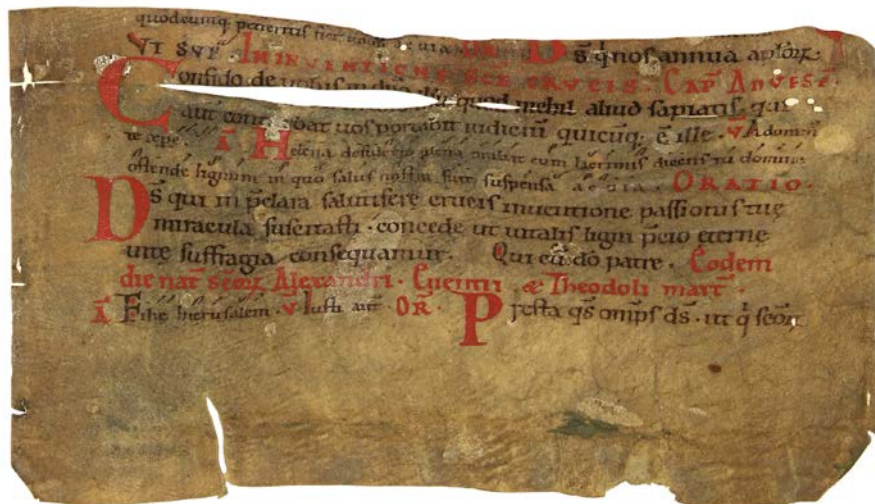 quodcumq. petieritis
D s̄ q̇ nos annua aplōꝝ.
UT SUP. IN INVENTIONE SC̄E CRVCIS. CAP̄ AD VESP.
Confido de uobis in dn̄o quod nichil aliud sapiatis. qui
aut̄ conturbat uos portabit iudiciū quicūq; ē ille. V̄ Adoram
te xp̄e. A Helena desiderio plena orabat cum lacrimis dicens tu domine
ostende lignum in quo salus nostra fuit suspensa aeuia. ORATIO.
Ds̄ qui in p̄clara salutifere crucis inuentione passionis tue
miracula suscitasti. concede ut uitalis ligni p̄cio eterne
uite suffragia consequamur. Qui cū dō patre. Eodem
die nat̄ sc̄oꝝ Alexandri. Euentii & Theodoli mart̄.
A Filie hierusalem. V Iusti aut̄. OR̄. Presta qs̄ omps̄ ds̄. ut q̇ sc̄oꝝ